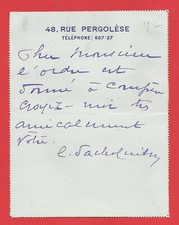 48, RUE PERGOLÈSE
TÉLÉPHONE: 667-27
Cher Monsieur
l'ordre est
donné à
Croyez-moi très
amicalement
votre.